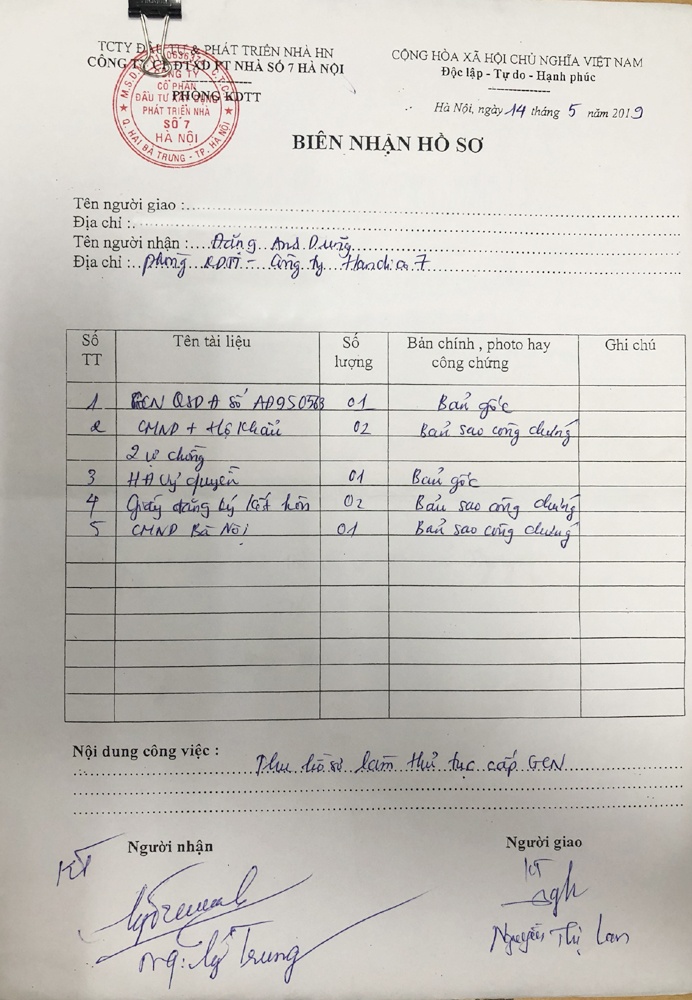 TCTY ĐẦU TƯ & PHÁT TRIỂN NHÀ HN
CÔNG TY CP ĐTXD PT NHÀ SỐ 7 HÀ NỘI
PHÒNG KDTT
CỘNG HÒA XÃ HỘI CHỦ NGHĨA VIỆT NAM
Độc lập - Tự do - Hạnh phúc
Hà Nội, ngày 14 tháng 5 năm 2019
CÔNG TY
CỔ PHẦN
ĐẦU TƯ XÂY DỰNG
PHÁT TRIỂN NHÀ
SỐ 7
HÀ NỘI
Q. HAI BÀ TRƯNG - TP. HÀ NỘI
BIÊN NHẬN HỒ SƠ
Tên người giao :
Địa chỉ :
Tên người nhận : Đặng Anh Dũng
Địa chỉ : phòng KDTT - Công ty Handico 7
Số TT Tên tài liệu Số lượng Bản chính , photo hay công chứng Ghi chú
1 GCN QSDĐ số AD950563 01 Bản gốc
2 CMND + Hộ khẩu 02 Bản sao công chứng
2 vợ chồng
3 HĐ uỷ quyền 01 Bản gốc
4 Giấy đăng ký kết hôn 02 Bản sao công chứng
5 CMND Bà Nội 01 Bản sao công chứng
Nội dung công việc :
Thu hồ sơ làm thủ tục cấp GCN
Người nhận
Người giao
KT
KT
Trung
Nguyễn Thị Lan